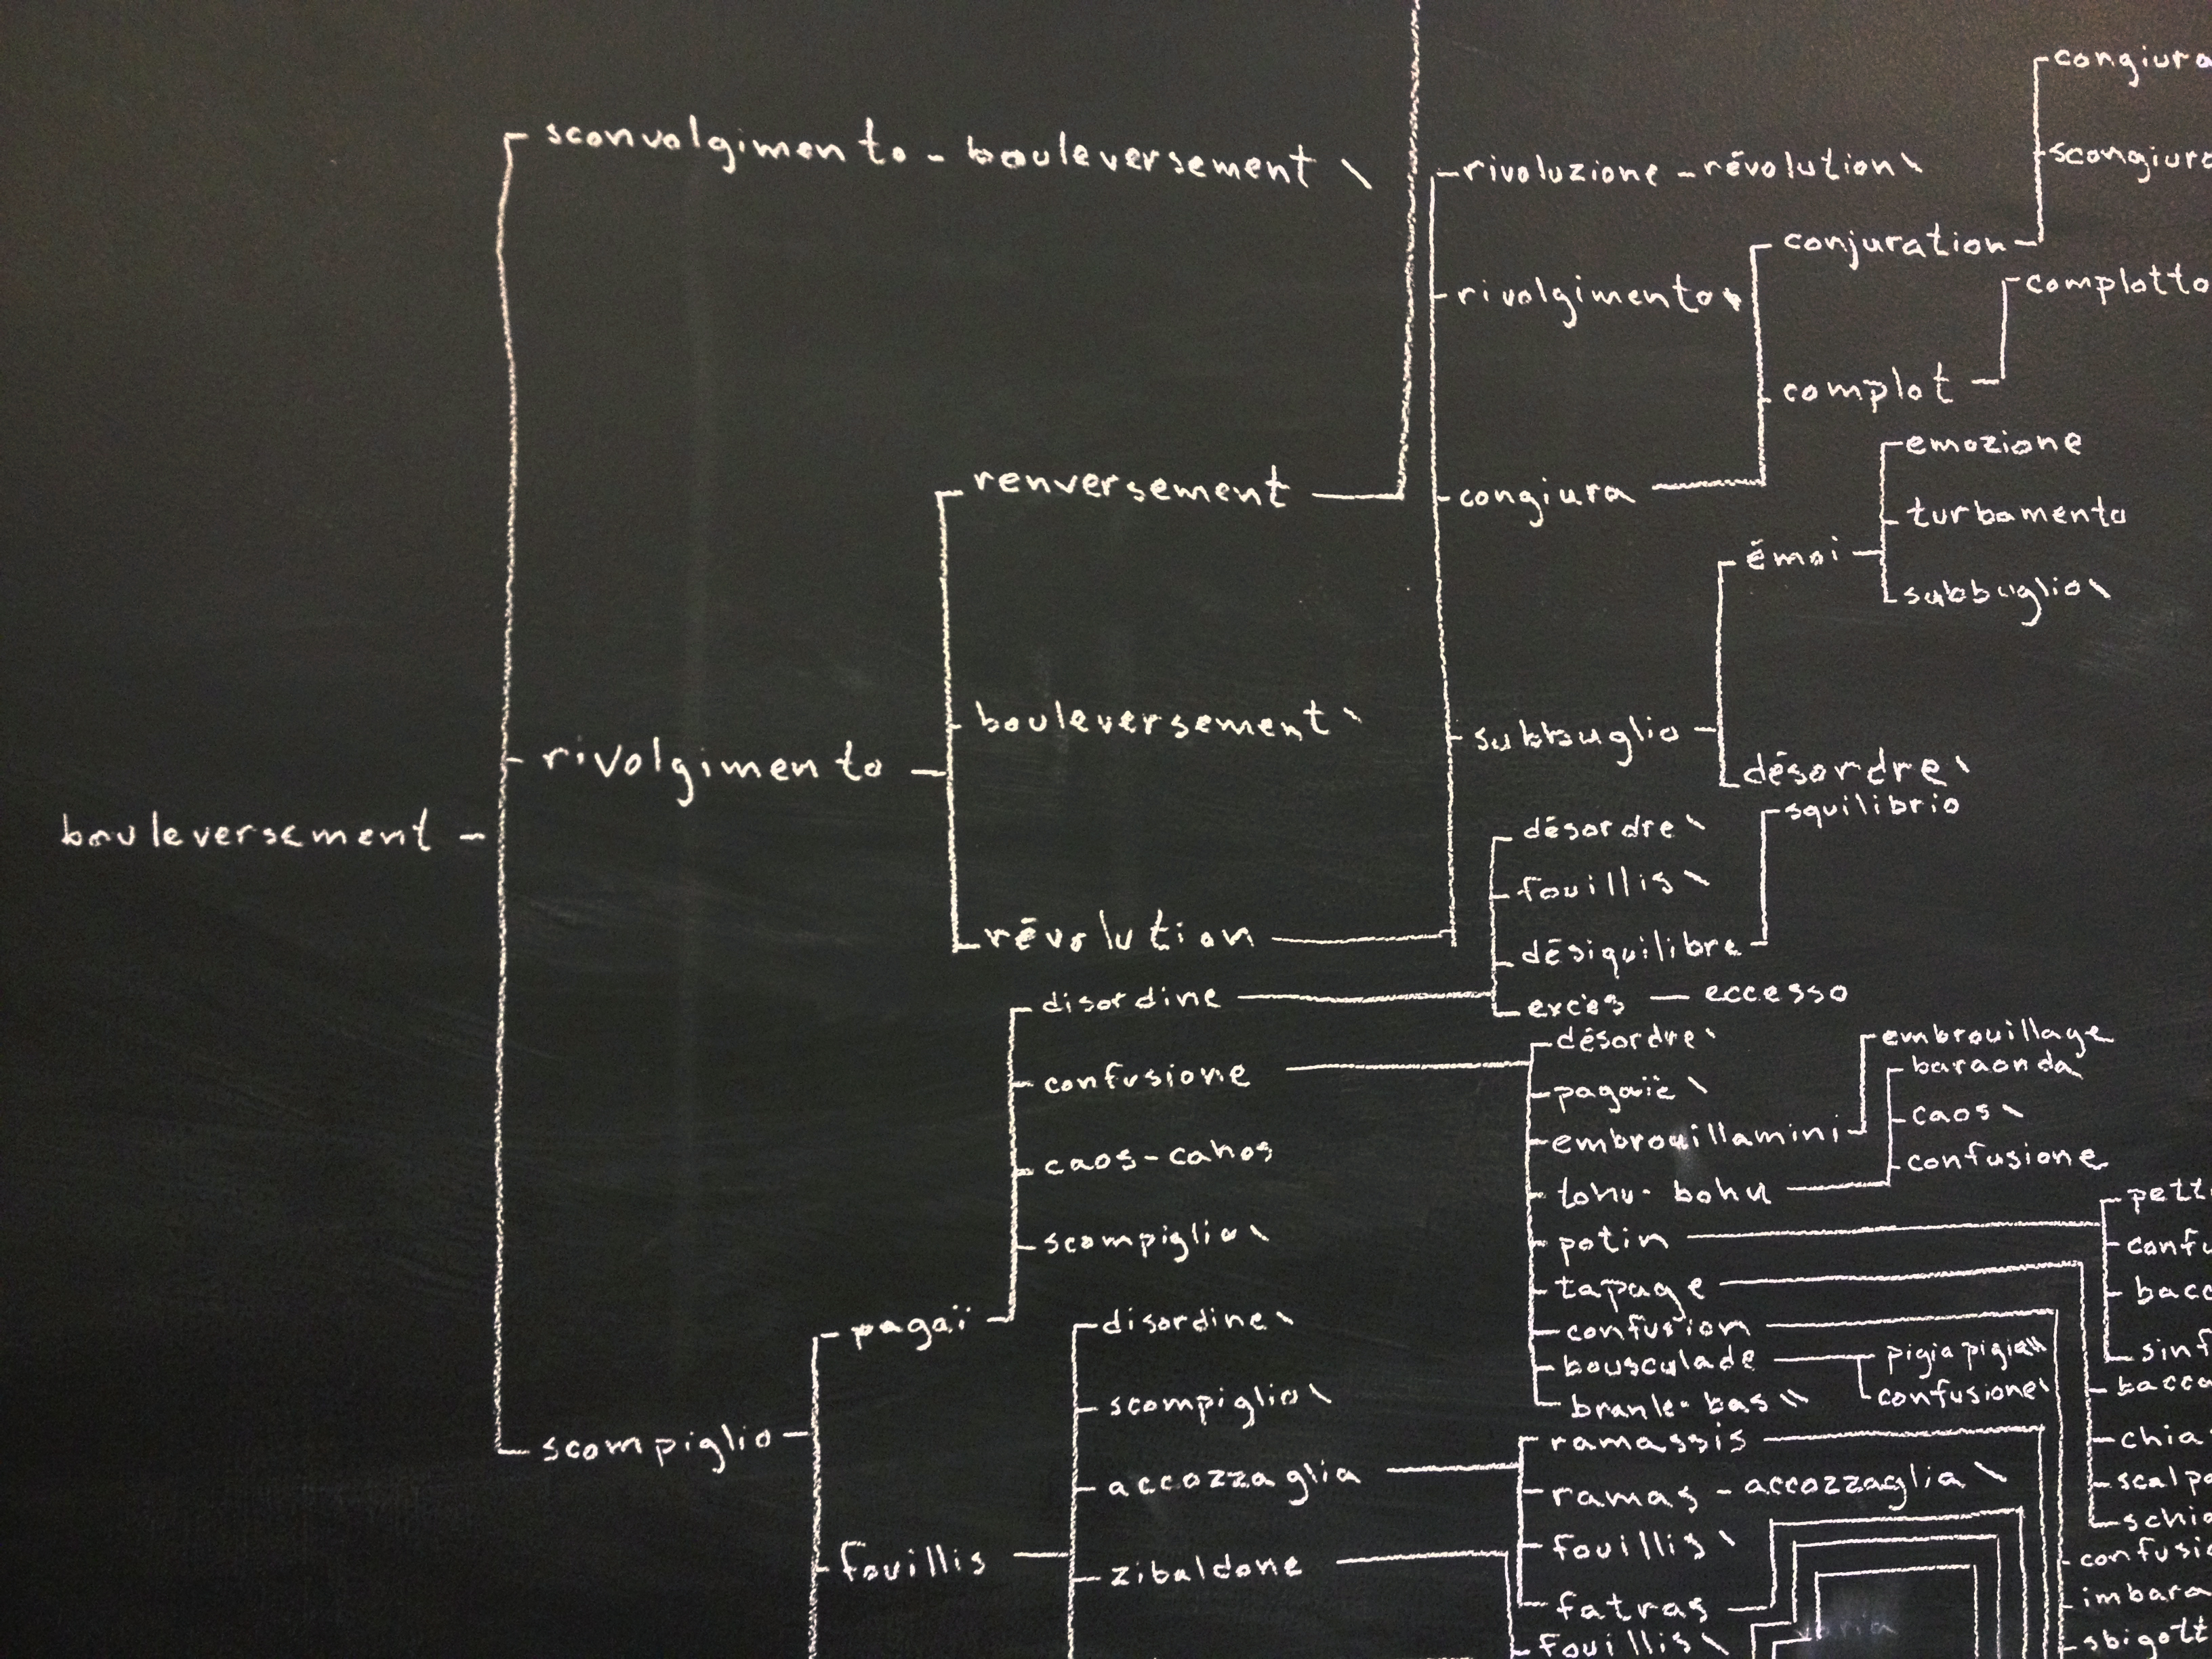 sconvolgimento - bouleversement \
rivoluzione - révolution \
rivolgimento \
conjuration
complotto
complot
emozione
renversement
congiura
turbamento
émoi
subbuglio \
bouleversement \
subbuglio
désordre \
rivolgimento
squilibrio
bouleversement
désordre \
fouillis \
révolution
désiquilibre
disordine
excès - eccesso
désordre \
embrouillage
baraonda
confusione
pagaïe \
caos \
embrouillamini
caos - cahos
confusione
tohu-bohu
scompiglio \
potin
tapage
pagaï
disordine \
confusion
bousculade
pigia pigia \\
confusione \
scompiglio \
branle-bas \\
scompiglio
ramassis
accozzaglia
ramas - accozzaglia \
fouillis \
fouillis
zibaldone
fatras
fouillis \